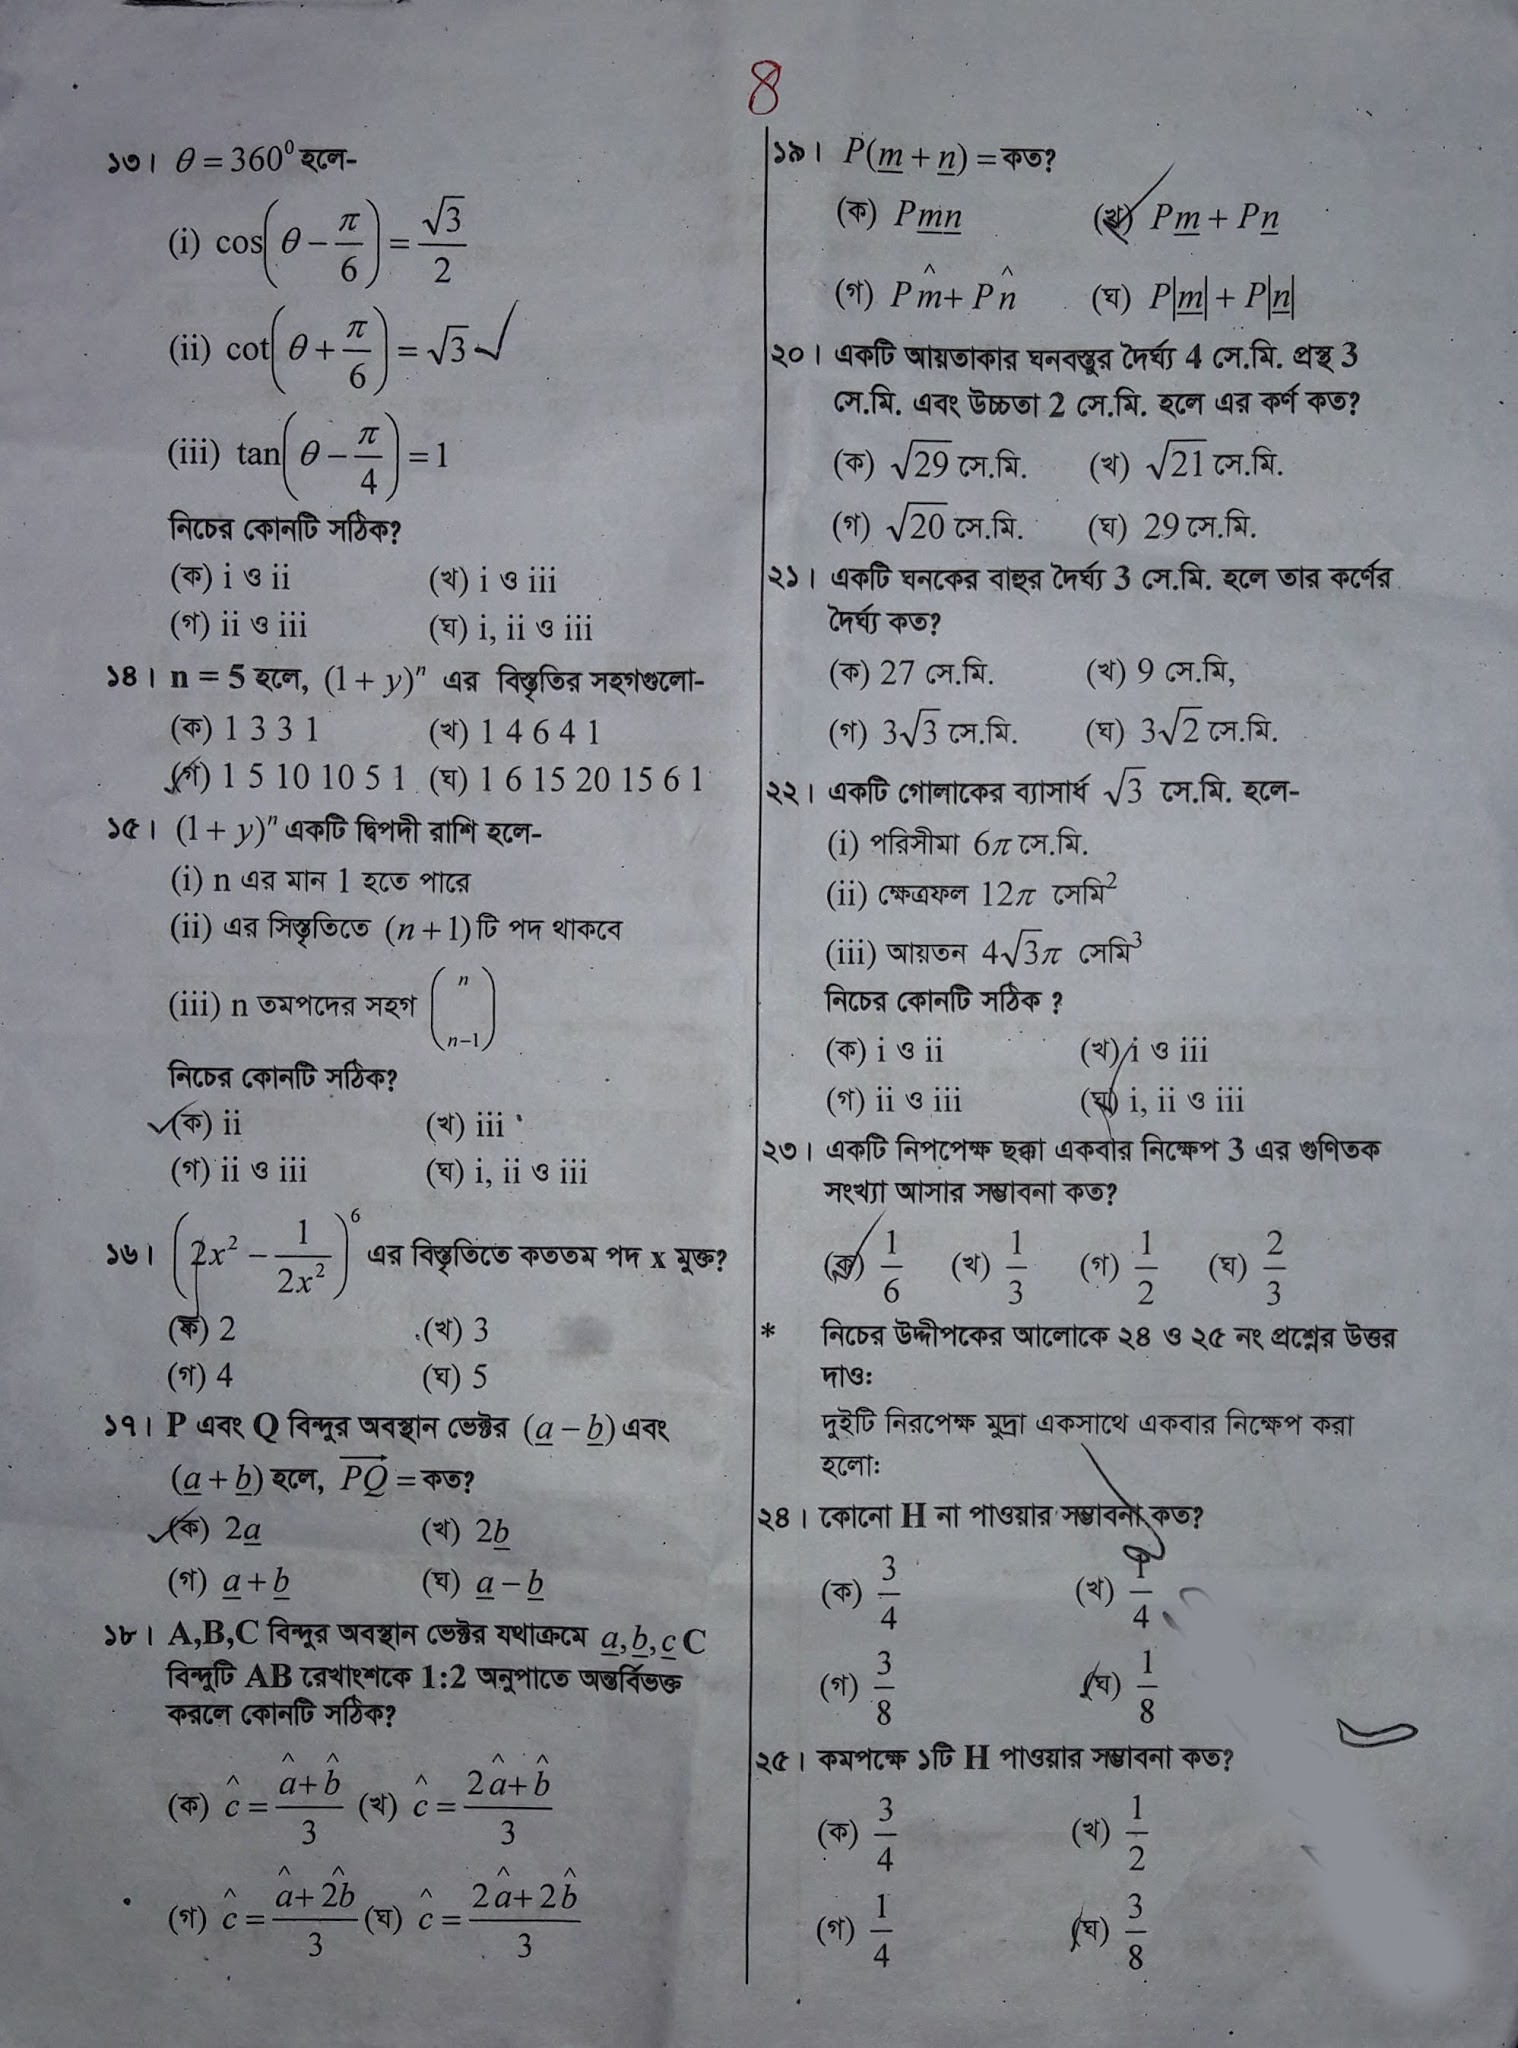 8
১৩। θ = 360⁰ হলে-
(i) cos(θ − π/6) = √3/2
(ii) cot(θ + π/6) = √3
(iii) tan(θ − π/4) = 1
নিচের কোনটি সঠিক?
(ক) i ও ii (খ) i ও iii
(গ) ii ও iii (ঘ) i, ii ও iii
১৪। n = 5 হলে, (1 + y)ⁿ এর বিস্তৃতির সহগগুলো-
(ক) 1 3 3 1 (খ) 1 4 6 4 1
(গ) 1 5 10 10 5 1 (ঘ) 1 6 15 20 15 6 1
১৫। (1 + y)ⁿ একটি দ্বিপদী রাশি হলে-
(i) n এর মান 1 হতে পারে
(ii) এর সিস্তৃতিতে (n + 1) টি পদ থাকবে
(iii) n তমপদের সহগ (n n−1)
নিচের কোনটি সঠিক?
(ক) ii (খ) iii
(গ) ii ও iii (ঘ) i, ii ও iii
১৬। (2x² − 1/2x²)⁶ এর বিস্তৃতিতে কততম পদ x মুক্ত?
(ক) 2 (খ) 3
(গ) 4 (ঘ) 5
১৭। P এবং Q বিন্দুর অবস্থান ভেক্টর (a̲ − b̲) এবং
(a̲ + b̲) হলে, PQ⃗ = কত?
(ক) 2a̲ (খ) 2b̲
(গ) a̲ + b̲ (ঘ) a̲ − b̲
১৮। A,B,C বিন্দুর অবস্থান ভেক্টর যথাক্রমে a̲, b̲, c̲ C
বিন্দুটি AB রেখাংশকে 1:2 অনুপাতে অন্তর্বিভক্ত
করলে কোনটি সঠিক?
(ক) ĉ = (â + b̂)/3 (খ) ĉ = (2â + b̂)/3
(গ) ĉ = (â + 2b̂)/3 (ঘ) ĉ = (2â + 2b̂)/3
১৯। P(m̲ + n̲) = কত?
(ক) Pm̲n̲ (খ) Pm̲ + Pn̲
(গ) Pm̂ + Pn̂ (ঘ) P|m̲| + P|n̲|
২০। একটি আয়তাকার ঘনবস্তুর দৈর্ঘ্য 4 সে.মি. প্রস্থ 3
সে.মি. এবং উচ্চতা 2 সে.মি. হলে এর কর্ণ কত?
(ক) √29 সে.মি. (খ) √21 সে.মি.
(গ) √20 সে.মি. (ঘ) 29 সে.মি.
২১। একটি ঘনকের বাহুর দৈর্ঘ্য 3 সে.মি. হলে তার কর্ণের
দৈর্ঘ্য কত?
(ক) 27 সে.মি. (খ) 9 সে.মি,
(গ) 3√3 সে.মি. (ঘ) 3√2 সে.মি.
২২। একটি গোলাকের ব্যাসার্ধ √3 সে.মি. হলে-
(i) পরিসীমা 6π সে.মি.
(ii) ক্ষেত্রফল 12π সেমি²
(iii) আয়তন 4√3π সেমি³
নিচের কোনটি সঠিক ?
(ক) i ও ii (খ) i ও iii
(গ) ii ও iii (ঘ) i, ii ও iii
২৩। একটি নিপপেক্ষ ছক্কা একবার নিক্ষেপ 3 এর গুণিতক
সংখ্যা আসার সম্ভাবনা কত?
(ক) 1/6 (খ) 1/3 (গ) 1/2 (ঘ) 2/3
* নিচের উদ্দীপকের আলোকে ২৪ ও ২৫ নং প্রশ্নের উত্তর
দাও:
দুইটি নিরপেক্ষ মুদ্রা একসাথে একবার নিক্ষেপ করা
হলো:
২৪। কোনো H না পাওয়ার সম্ভাবনা কত?
(ক) 3/4 (খ) 1/4
(গ) 3/8 (ঘ) 1/8
২৫। কমপক্ষে ১টি H পাওয়ার সম্ভাবনা কত?
(ক) 3/4 (খ) 1/2
(গ) 1/4 (ঘ) 3/8